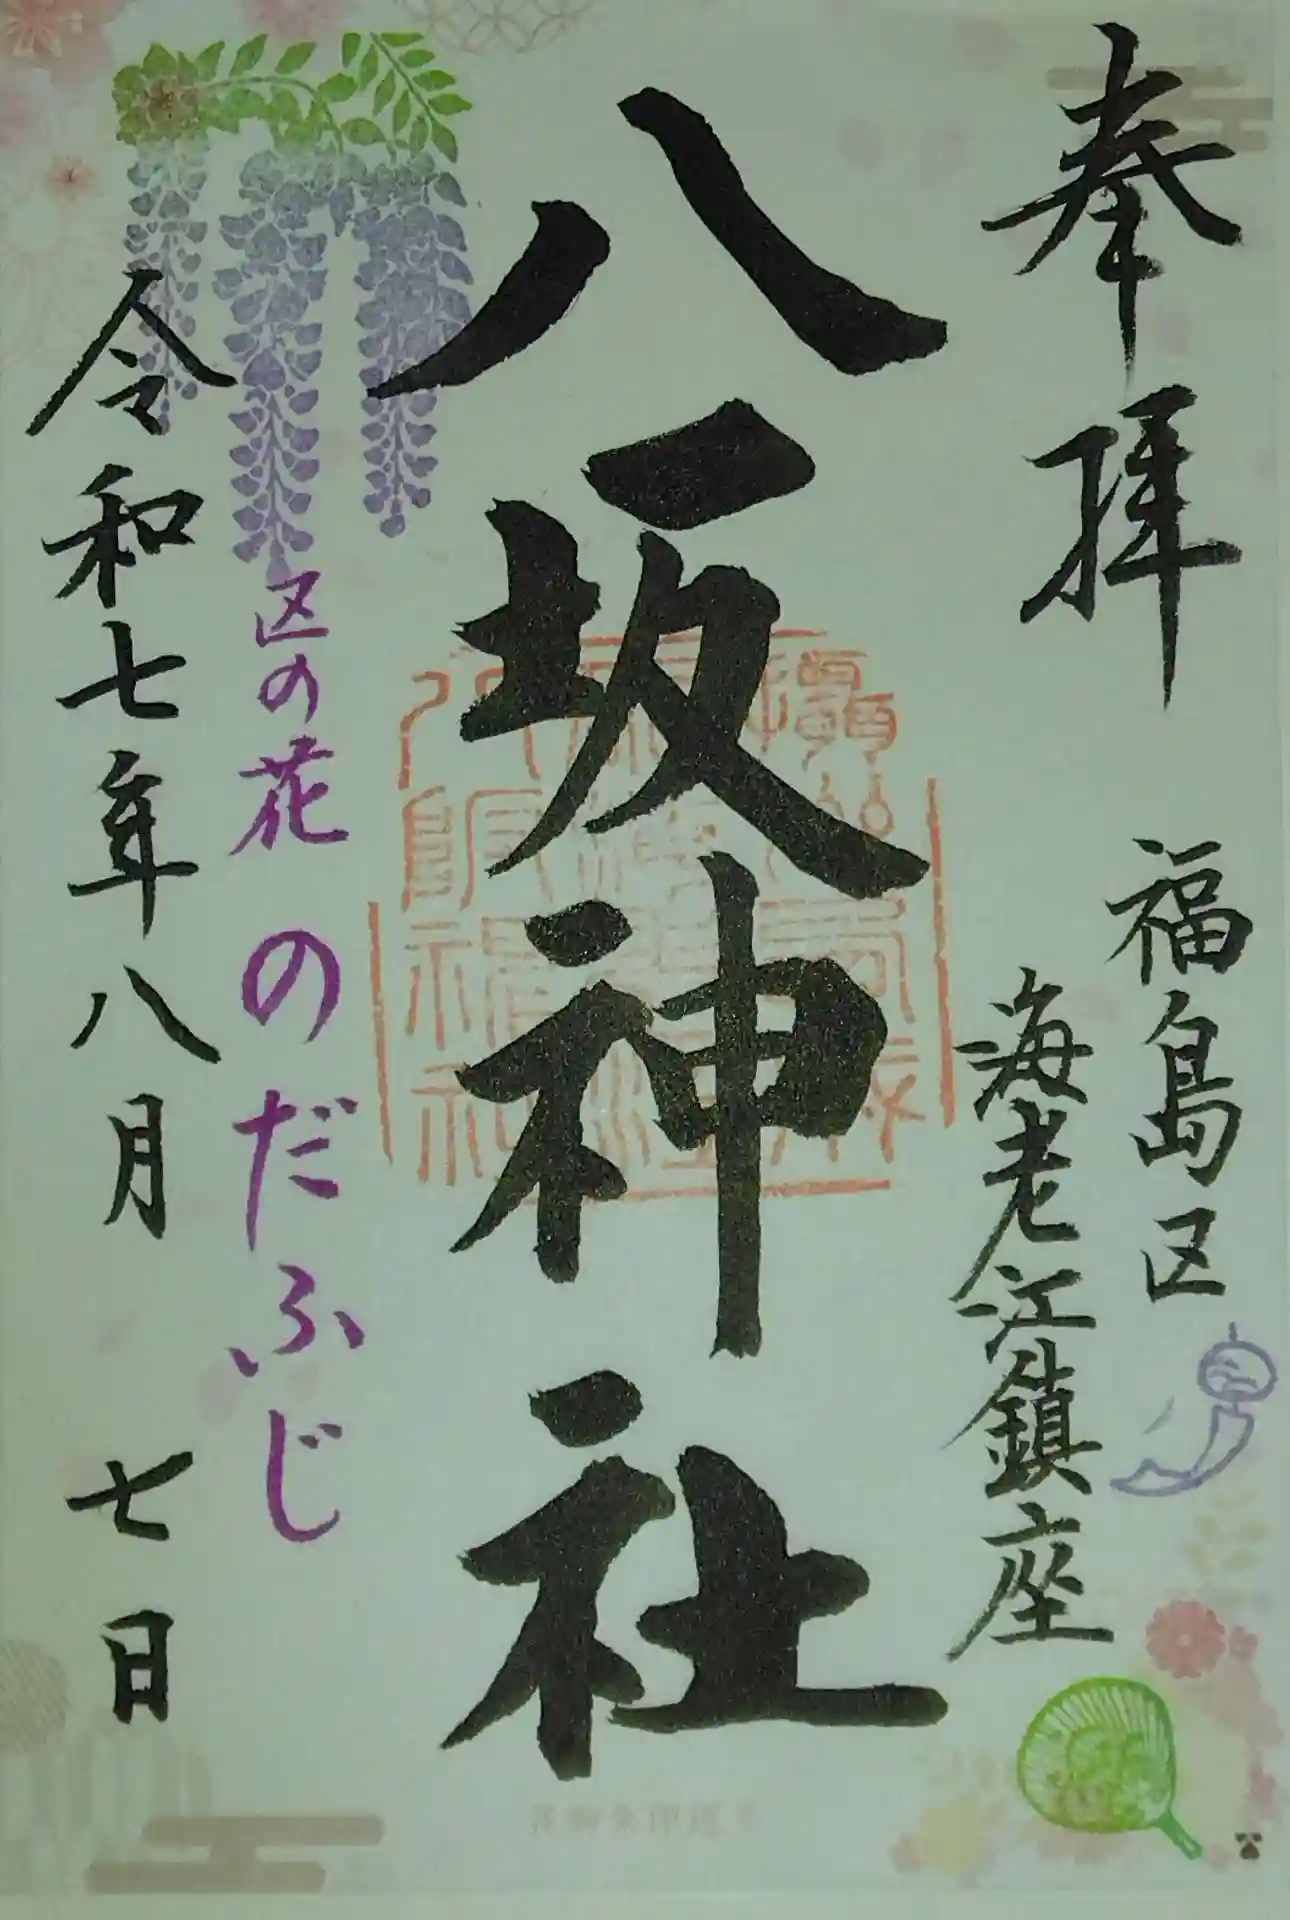 奉拝
福島区
海老江鎮座
八坂神社
区の花 のだふじ
令和七年八月 七日